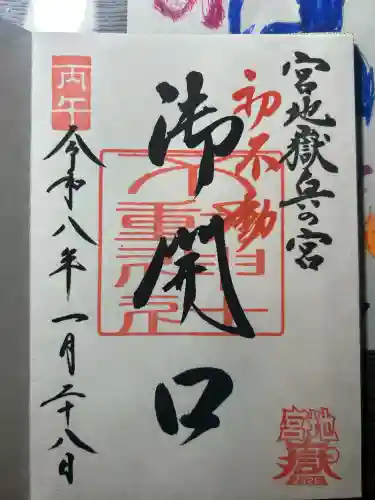 宮地嶽兵の宮
初不動
御開口
丙午
令和八年一月二十八日
宮地嶽